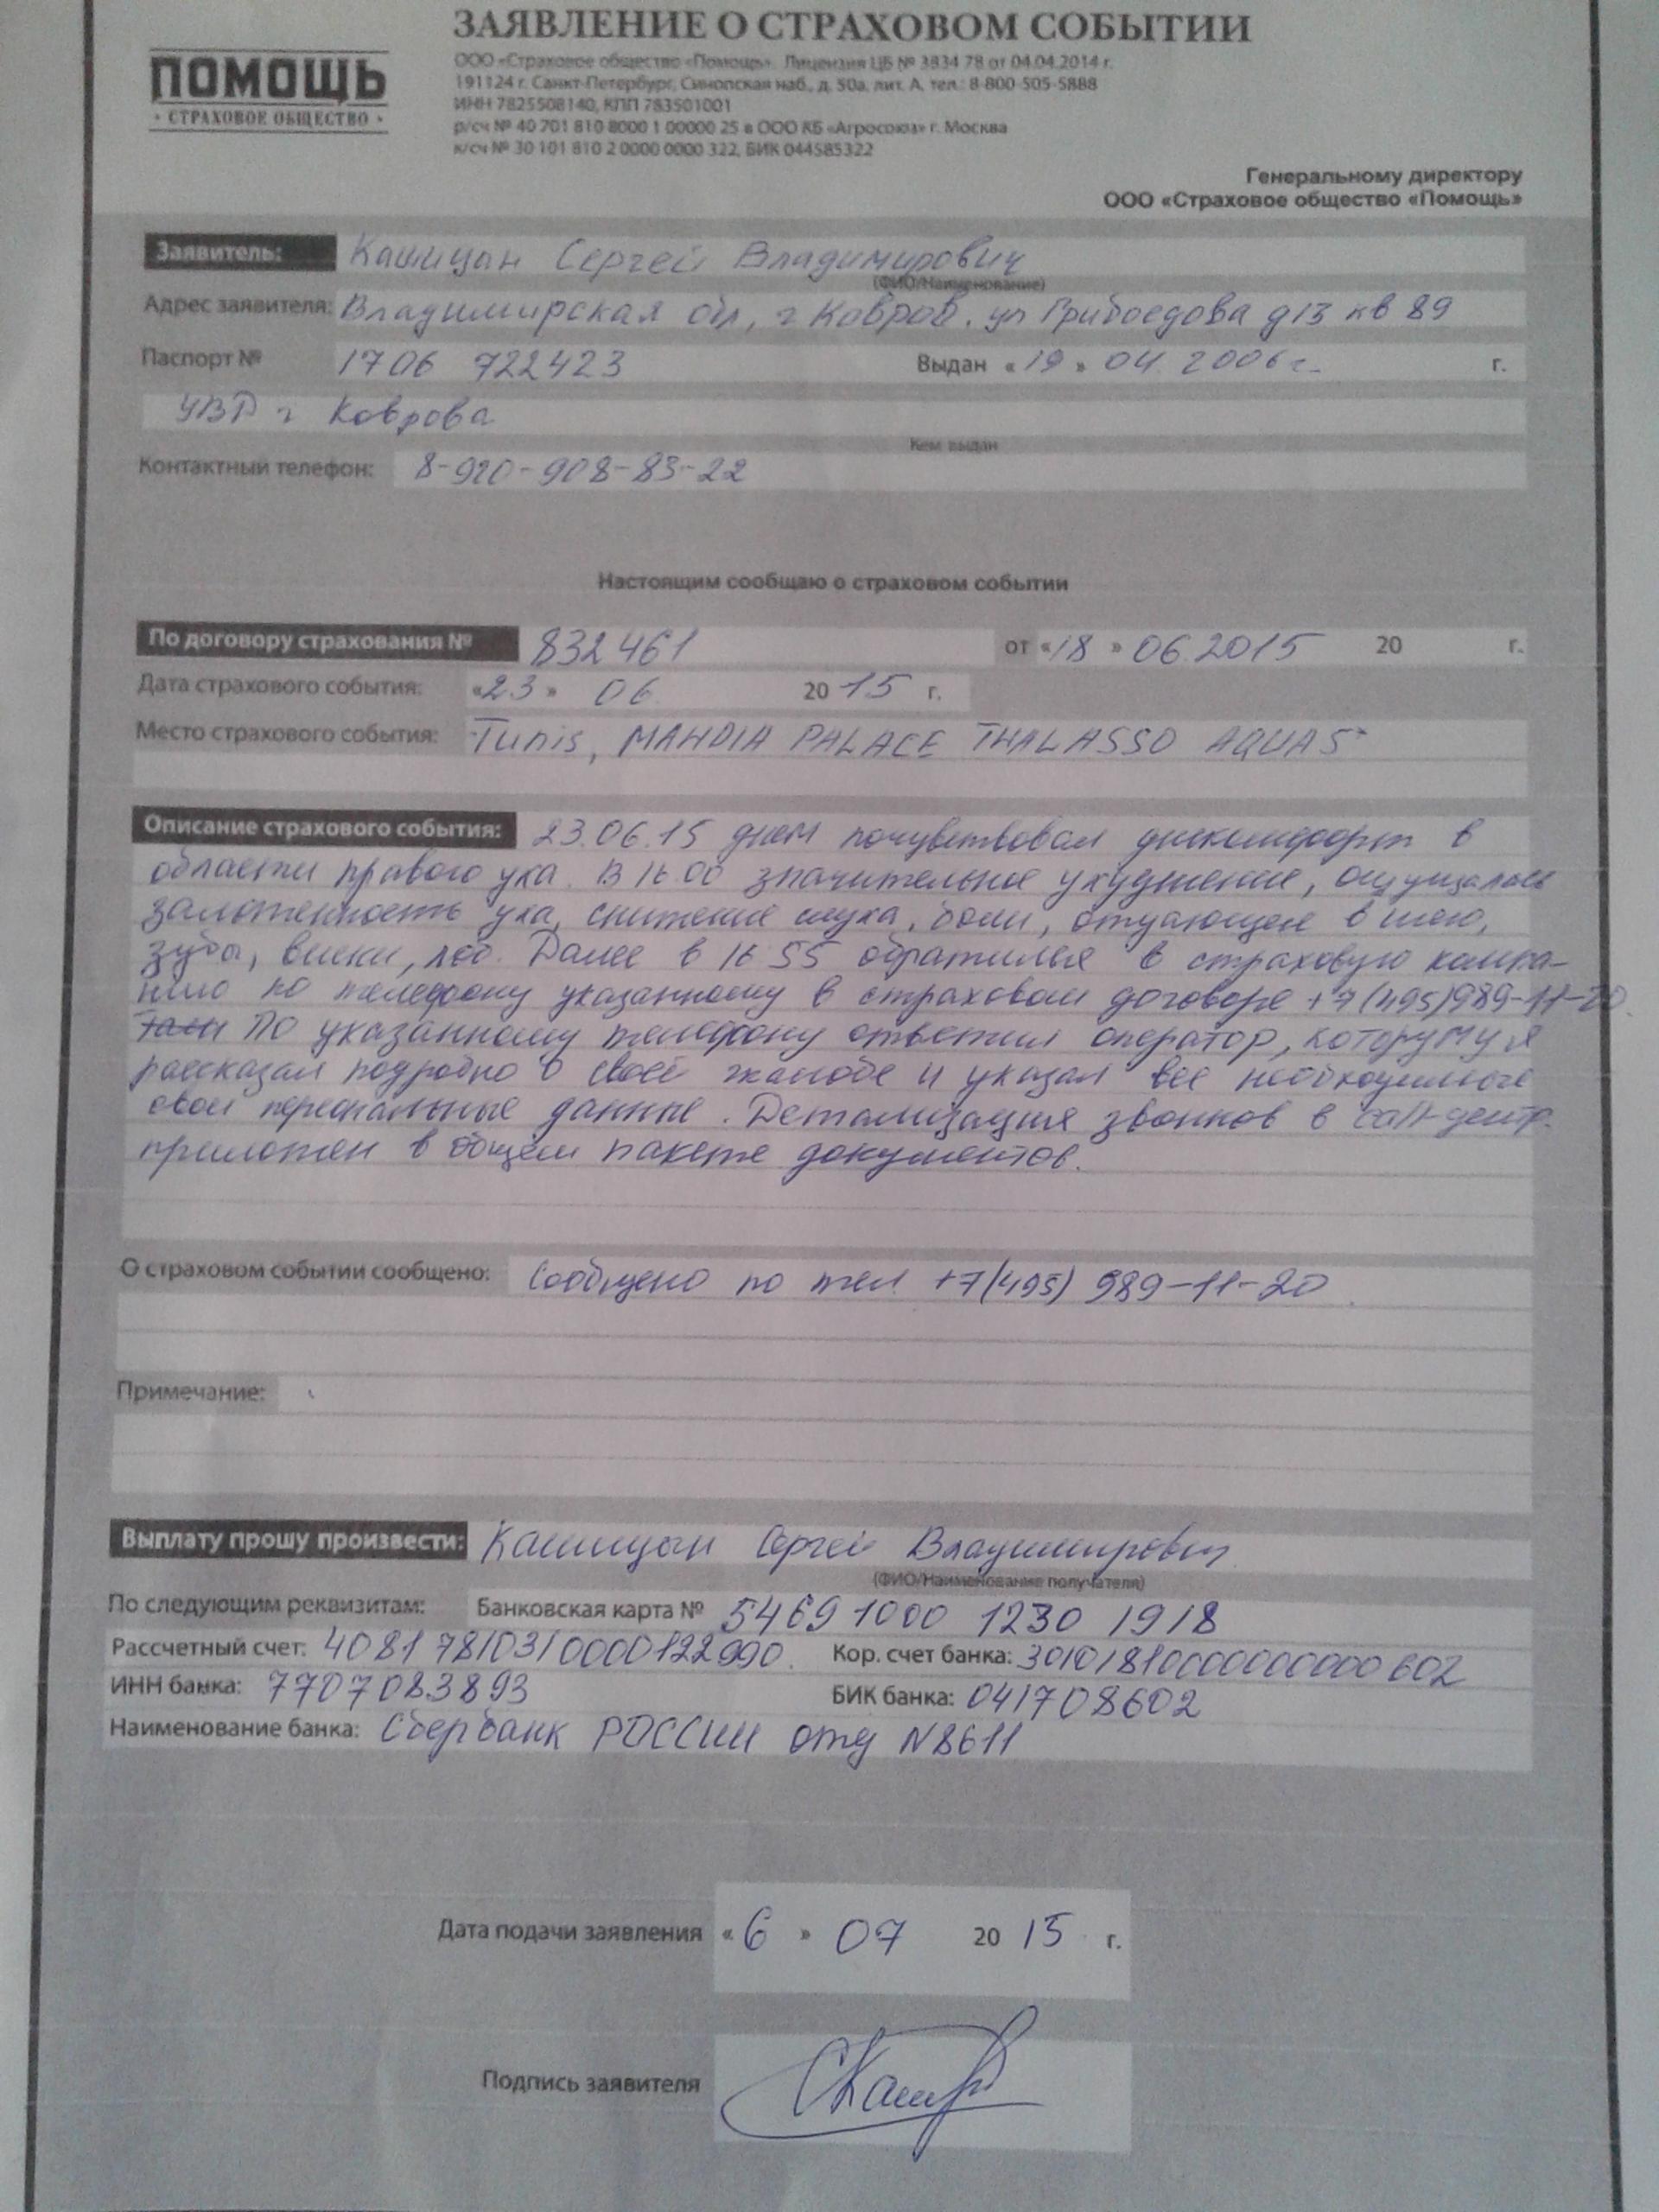 ЗАЯВЛЕНИЕ О СТРАХОВОМ СОБЫТИИ
ПОМОЩЬ
• СТРАХОВОЕ ОБЩЕСТВО •
ООО «Страховое общество «Помощь». Лицензия ЦБ № 3834 78 от 04.04.2014 г.
191124 г. Санкт-Петербург, Синопская наб., д. 50а, лит. А, тел.: 8-800-505-5888
ИНН 7825508140, КПП 783501001
р/сч № 40 701 810 8000 1 00000 25 в ООО КБ «Агросоюз» г. Москва
к/сч № 30 101 810 2 0000 0000 322, БИК 044585322
Генеральному директору
ООО «Страховое общество «Помощь»
Заявитель: Кашицын Сергей Владимирович
(ФИО/Наименование)
Адрес заявителя: Владимирская обл, г Ковров, ул Грибоедова д13 кв 89
Паспорт № 1706 722423 Выдан « 19 » 04. 2006 г. г.
УВД г Коврова
Кем выдан
Контактный телефон: 8-920-908-83-22
Настоящим сообщаю о страховом событии
По договору страхования № 832461 от «18 » 06.2015 20 г.
Дата страхового события: «23 » 06 20 15 г.
Место страхового события: Tunis, MAHDIA PALACE THALASSO AQUA 5*
Описание страхового события: 23.06.15 днем почувствовал дискомфорт в
области правого уха. В 16 00 значительное ухудшение, ощущалась
заложенность уха, снижение слуха, боли, отдающая в шею,
зубы, виски, лоб. Далее в 16 55 обратился в страховую компа-
нию по телефону указанному в страховом договоре +7(495)989-11-20.
По указанному телефону ответил оператор, которуму я
рассказал подробно о своей жалобе и указал все необходимые
свои персональные данные. Детализация звонков в call-центр.
приложен в общем пакете документов.
О страховом событии сообщено: Сообщено по тел +7(495) 989-11-20.
Примечание:
Выплату прошу произвести: Кашицын Сергей Владимирович
(ФИО/Наименование получателя)
По следующим реквизитам: Банковская карта № 5469 1000 1230 1918
Рассчетный счет: 40817810310000122990. Кор. счет банка: 30101810000000000602
ИНН банка: 7707083893 БИК банка: 041708602
Наименование банка: Сбербанк РОССИИ отд N8611
Дата подачи заявления « 6 » 07 20 15 г.
Подпись заявителя